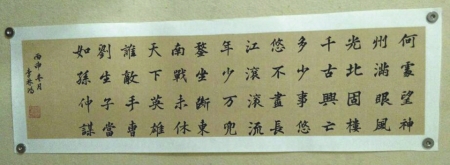 何處望神
州滿眼風
光北固樓
千古興亡
多少事悠
悠不盡長
江滾滾流
年少万兜
鍪坐斷東
南戰未休
天下英雄
誰敵手曹
劉生子當
如孫仲謀
丙申春月